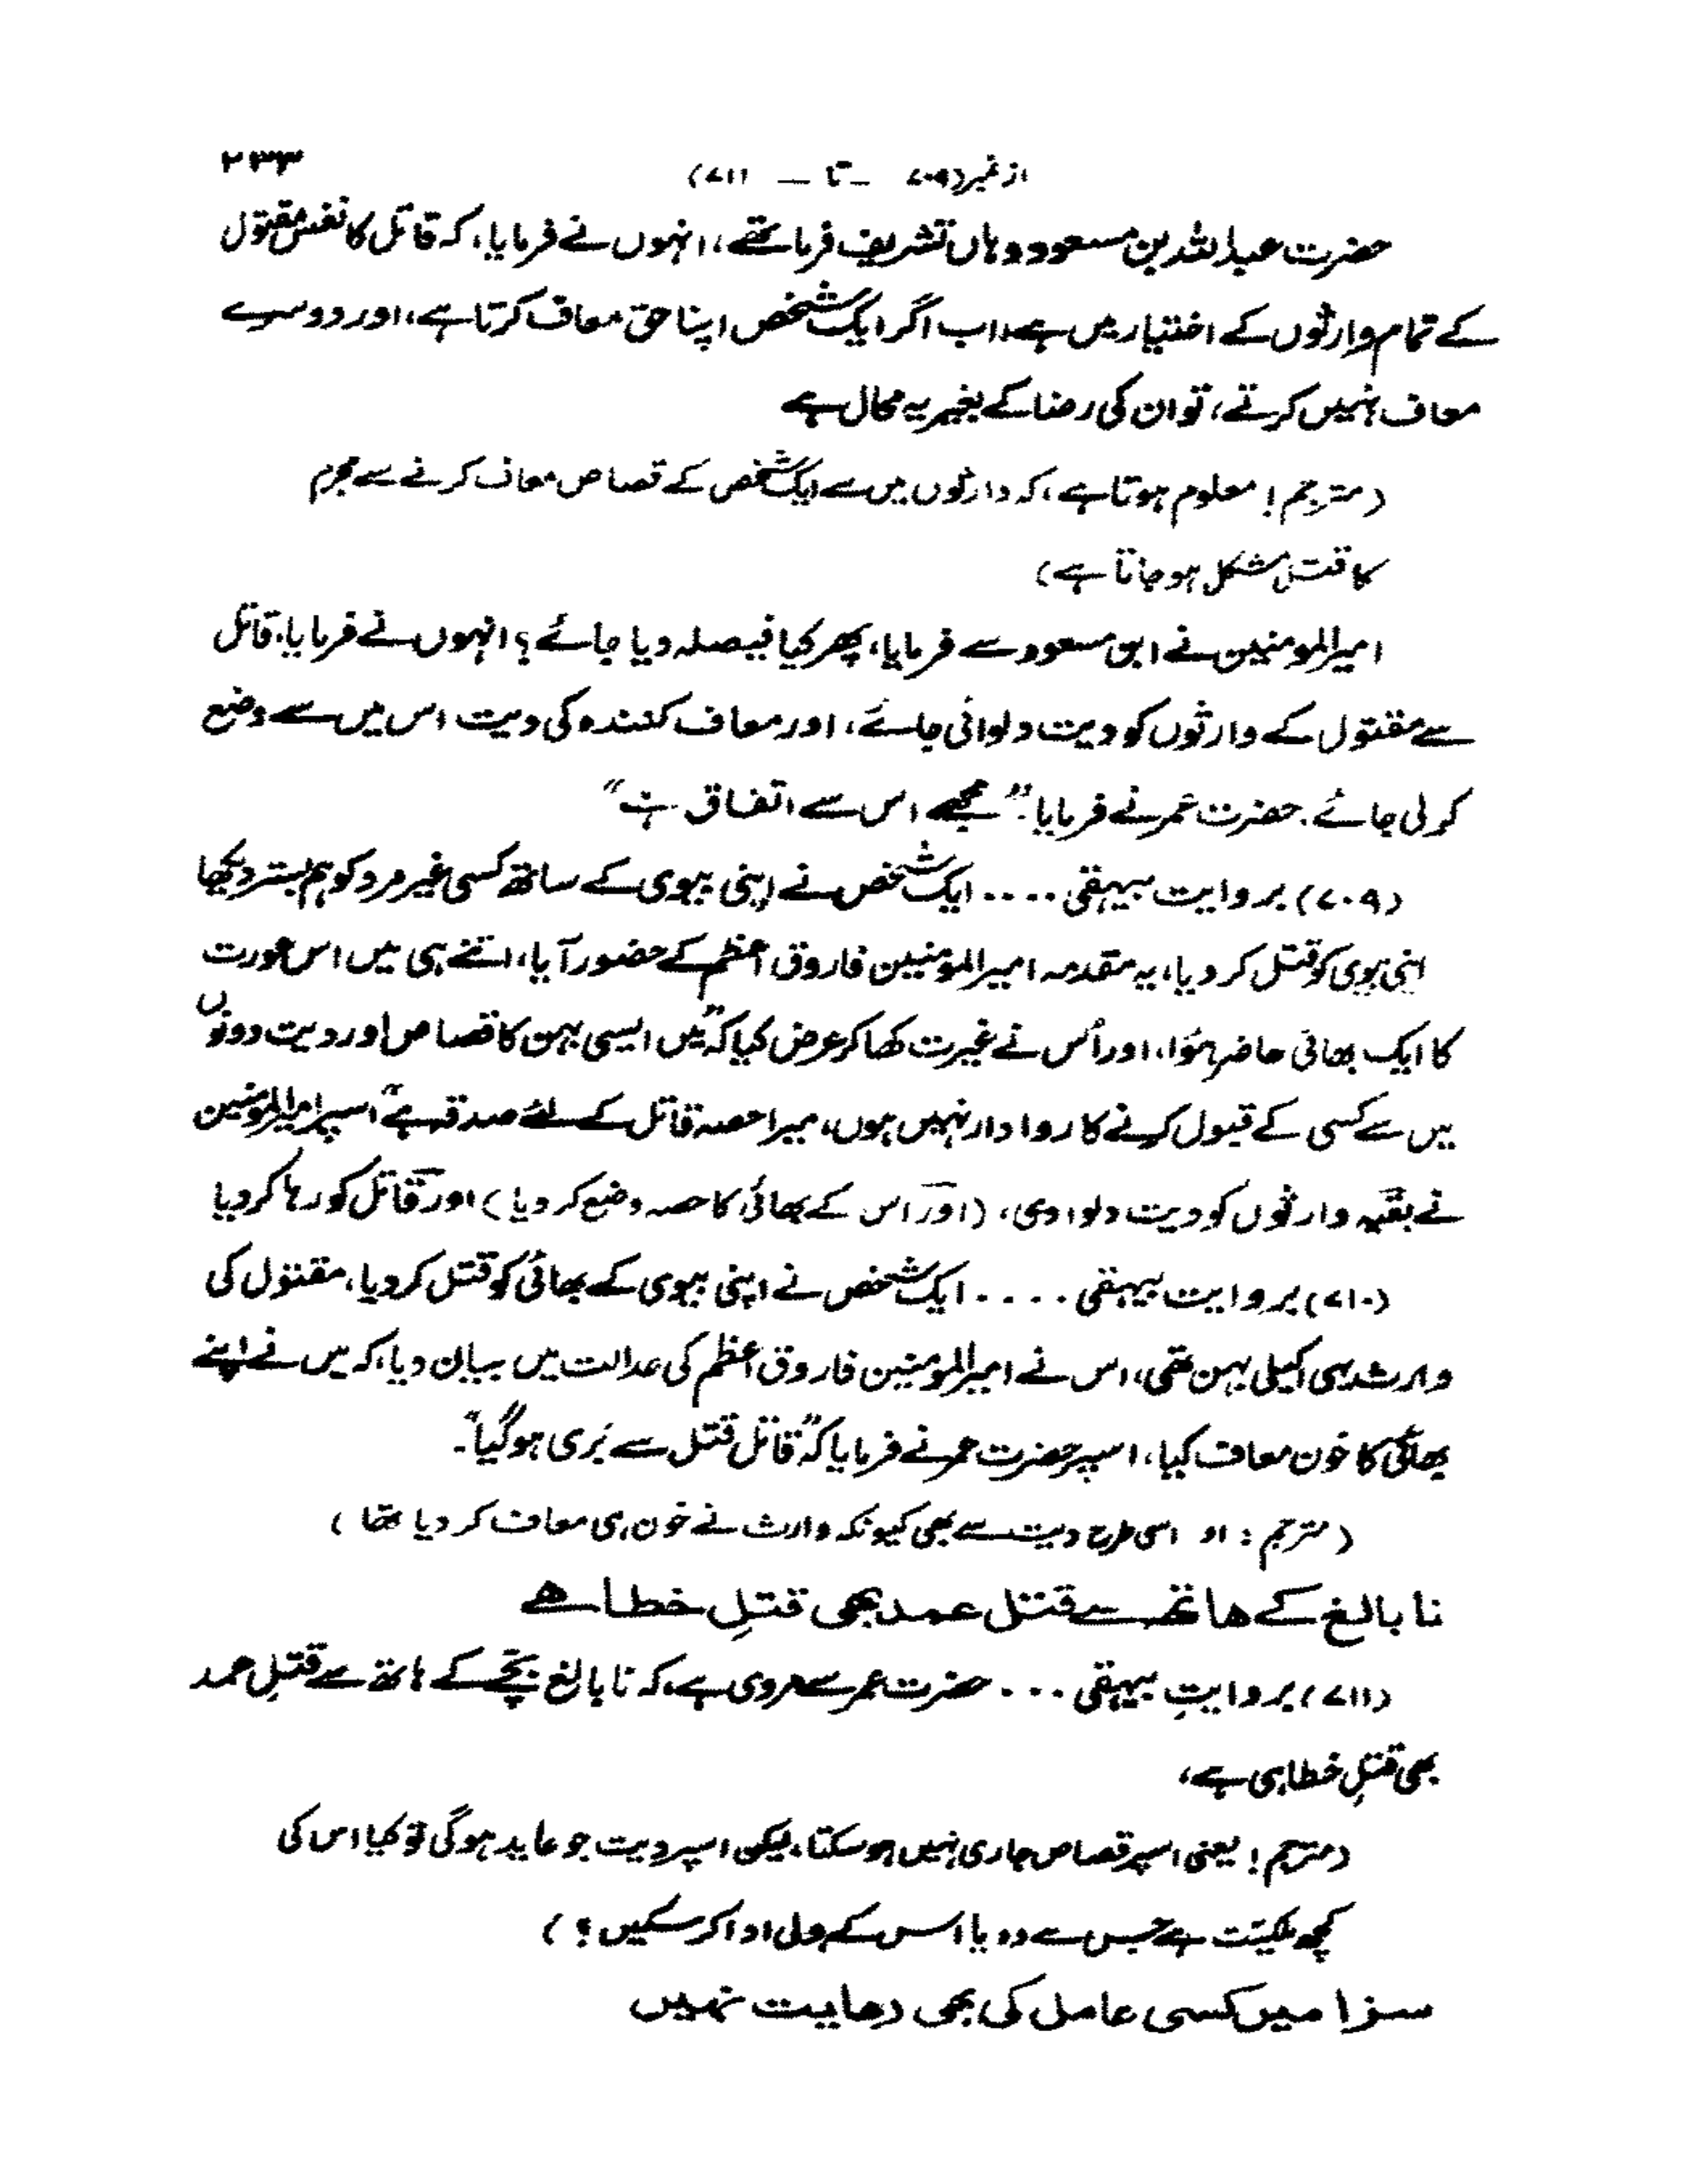 از نمبر (۷۰۹ – تا – ۷۱۱) ۲۳۳
حضرت عبداللہ بن مسعود وہاں تشریف فرما تھے، انہوں نے فرمایا، کہ قاتل کا نفس مقتول
کے تمام وارثوں کے اختیار میں ہے، اب اگر ایک شخص اپنا حق معاف کرتا ہے، اور دوسرے
معاف نہیں کرتے، تو ان کی رضا کے بغیر یہ محال ہے
(مترجم! معلوم ہوتا ہے، کہ وارثوں میں سے ایک شخص کے قصاص معاف کرنے سے مجرم
کا قتل مشکل ہو جاتا ہے)
امیرالمومنین نے ابن مسعود سے فرمایا، پھر کیا فیصلہ دیا جائے؟ انہوں نے فرمایا، قاتل
سے مقتول کے وارثوں کو دیت دلوائی جائے، اور معاف کنندہ کی دیت اس میں سے وضع
کر لی جائے. حضرت عمر نے فرمایا: "مجھے اس سے اتفاق ہے"
(۷۰۹) بروایت بیہقی .... ایک شخص نے اپنی بیوی کے ساتھ کسی غیر مرد کو ہم بستر دیکھا
اپنی بیوی کو قتل کر دیا، یہ مقدمہ امیرالمومنین فاروق اعظم کے حضور آیا، اتنے ہی میں اس عورت
کا ایک بھائی حاضر ہؤا، اور اُس نے غیرت کھا کر عرض کیا کہ "میں ایسی بہن کا قصاص اور دیت دونوں
میں سے کسی کے قبول کرنے کا روادار نہیں ہوں، میرا حصہ قاتل کے لئے صدقہ ہے" اسپر امیرالمومنین
نے بقیہ وارثوں کو دیت دلوا دی، (اور اس کے بھائی کا حصہ وضع کر دیا) اور قاتل کو رہا کر دیا
(۷۱۰) بروایت بیہقی .... ایک شخص نے اپنی بیوی کے بھائی کو قتل کر دیا، مقتول کی
وارث یہی اکیلی بہن تھی، اس نے امیرالمومنین فاروق اعظم کی عدالت میں بیان دیا، کہ میں نے اپنے
بھائی کا خون معاف کیا، اسپر حضرت عمر نے فرمایا کہ "قاتل قتل سے بَری ہو گیا"۔
(مترجم: او اسی طرح دیت سے بھی کیونکہ وارث نے خون ہی معاف کر دیا تھا)
نابالغ کے ہاتھ سے قتل عمد بھی قتلِ خطا ہے
(۷۱۱) بروایتِ بیہقی ... حضرت عمر سے مروی ہے، کہ نابالغ بچّے کے ہاتھ سے قتلِ عمد
بھی قتلِ خطا ہی ہے،
(مترجم! یعنی اسپر قصاص جاری نہیں ہو سکتا، لیکن اسپر دیت جو عاید ہوگی تو کیا اس کی
کچھ ملکیّت ہے جس سے وہ یا اس کے ولی ادا کر سکیں؟)
سزا میں کسی عامل کی بھی رعایت نہیں